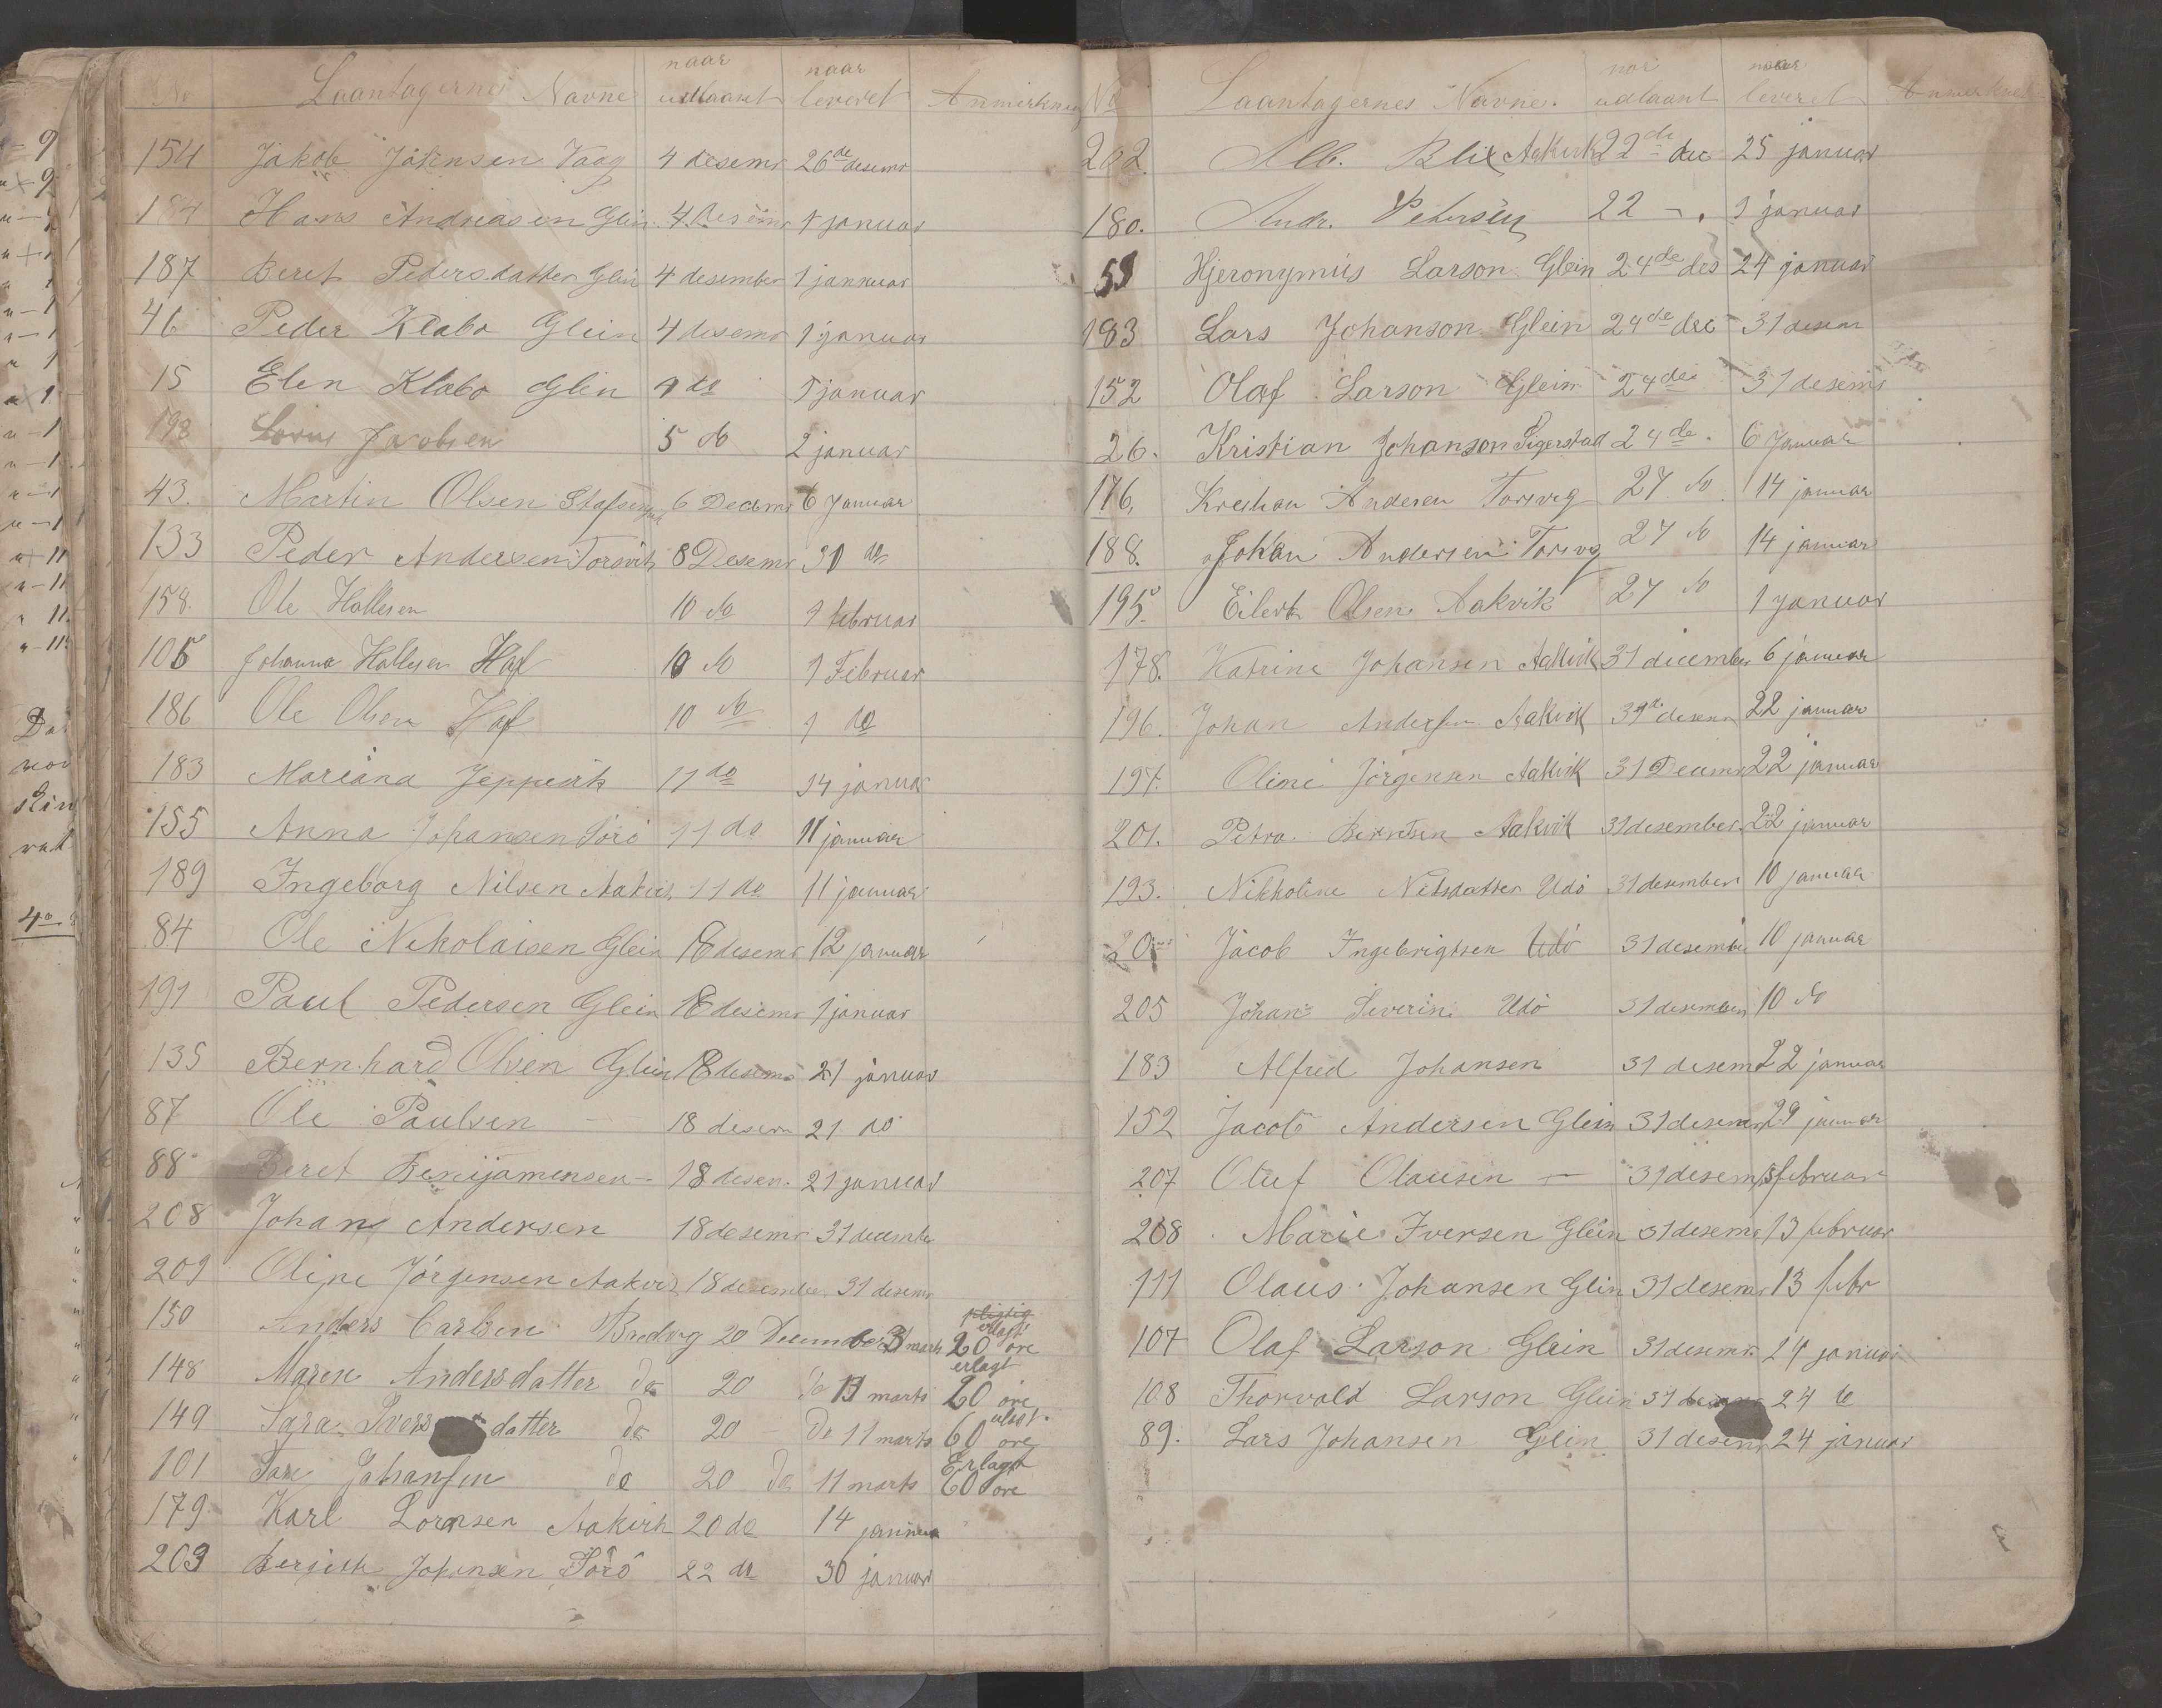 No Laantagernes Navne naar udlaant naar leveret Anmerkning
154 Jakob Jörensen Vaag 4 desemr 26de desemr
184 Hans Andreasen Glein 4 Desemr 1 januar
187 Beret Pedersdatter Glein 4 desember 1 januar
46 Peder Klabo Glein 4 desemr 1 januar
15 Elen Klabo Glein 4 do 1 januar
198 Jacobsen 5 do 2 januar
43. Martin Olsen 6 Decemr 6 Januar
133 Peder Andersen Torsvik 8 Desemr 30 do
158. Ole Hallesen 10 do 1 februar
105 Johanna Hallesen Haf 10 do 1 Februar
186 Ole Olsen Haf 10 do 1 do
183 Mariana Jeppesik 11 do 14 januar
155 Anna Johansen Sörö 11 do 11 januar
189 Ingeborg Nilsen Aakvik 11 do 11 januar
84 Ole Nikolaisen Glein 18 desemr 12 januar
191 Paul Pedersen Glein 18 desemr 1 januar
135 Bernhard Olsen Glein 18 desemr 21 januar
87 Ole Paulsen — 18 desem 21 do
88 Beret Benijamensen — 18 desem. 21 januar
208 Johan Andersen 18 desemr 31 decembr
209 Oline Jörgensen Aakvik 18 desember 31 desemr
150 Anders Carlsen Bredvig 20 December 11 marts erlagt 20 öre
148 Maren Andersdatter do 20 do 11 marts erlagt 20 öre
149 Sara Ivers datter do 20 — Do 11 marts erlagt 60 öre
101 Johansen do 20 do 11 marts Erlagt 60 öre
179. Karl Lorensen Aakvik 20 do 14 januar
203 Bergitte Johansen Sörö 22 do 30 januar
No Laantagernes Navne. naar udlaant naar leveret Anmerkning
202. Alb. Blix Aakvik 22de dec 25 januar
180. Andr. Petersen 22 — . 1 januar
58 Hjeronymus Larson Glein 24de des 24 januar
193 Lars Johanson Glein 24de dec 31 desem
152 Olaf Larson Glein 24de 31 desemr
26. Kristian Johanson Sigerstad 24de. 6 Januar
176, Kristian Andersen Torsvig 27 do. 14 januar
188. Johan Andersen Torsvg 27 do 14 januar
195. Eilert Olsen Aakvik 27 do 1 januar
178. Katrine Johansen Aakvik 31 december 6 januar
196. Johan Andersen Aakvik 31de desemr 22 januar
197. Oline Jörgensen Aakvik 31 Decemr 22 januar
201. Petra Berntsen Aakvik 31 desember 22 januar
193. Nikkoline Nilsdatter Udö 31 desember 10 januar
20 Jacob Ingebrigtsen Udö 31 desember 10 januar
205 Johan Severin Udö 31 desember 10 do
183 Alfred Johansen 31 desemr 22 januar
152 Jacob Andersen Glein 31 desemr 29 januar
207 Oluf Olausen — 31 desemr 13 februar
208 Marie Iversen Glein 31 desemr 13 februar
111 Olaus Johansen Glein 31 desemr 13 febr
107 Olaf Larson Glein 31 desemr. 24 januar
108 Thorvald Larson Glein 31 desemr 24 do
89. Lars Johansen Glein 31 desemr 24 januar